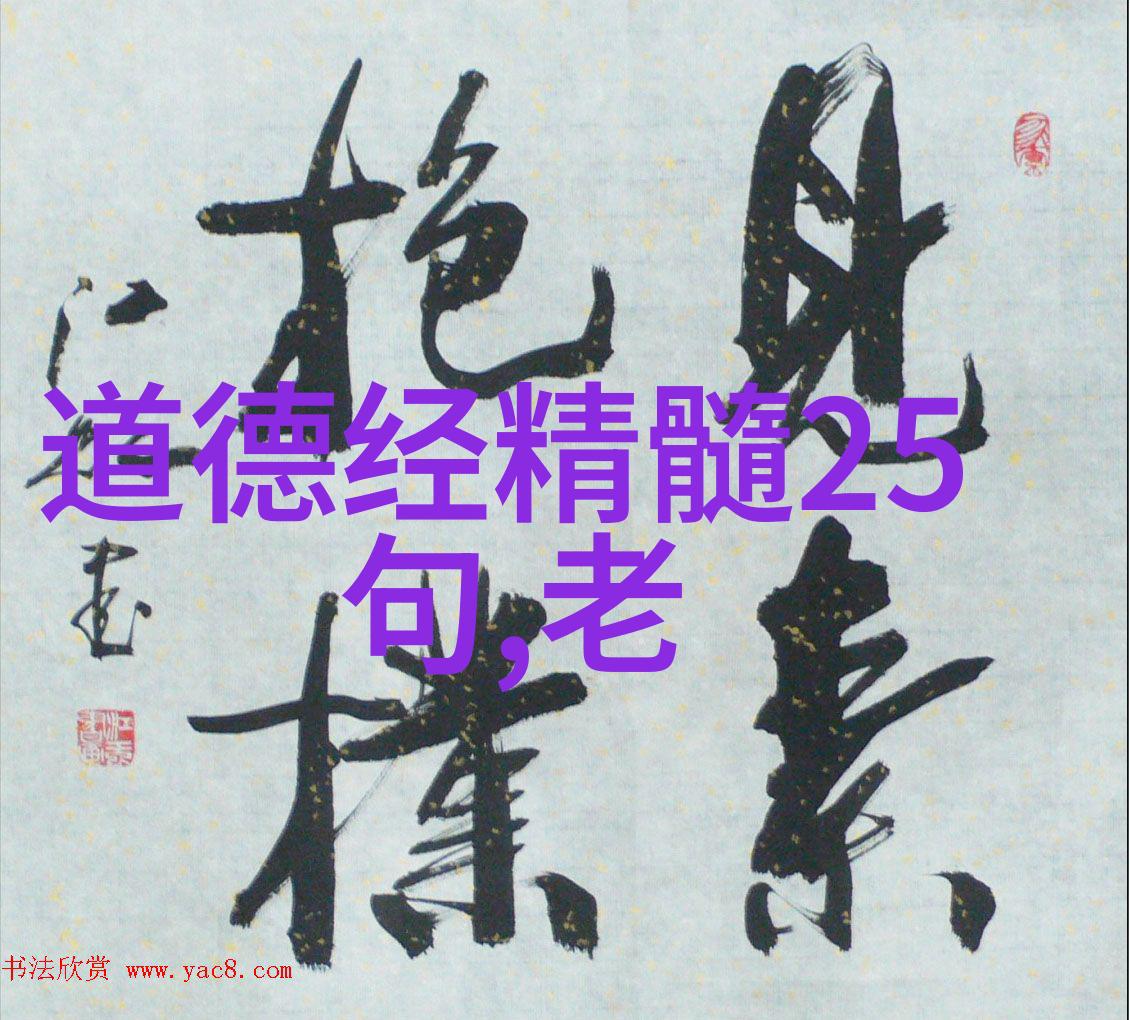 見素
抱樸
江
書
道德经精髓25
句,老
书法欣赏 www.yac8.com